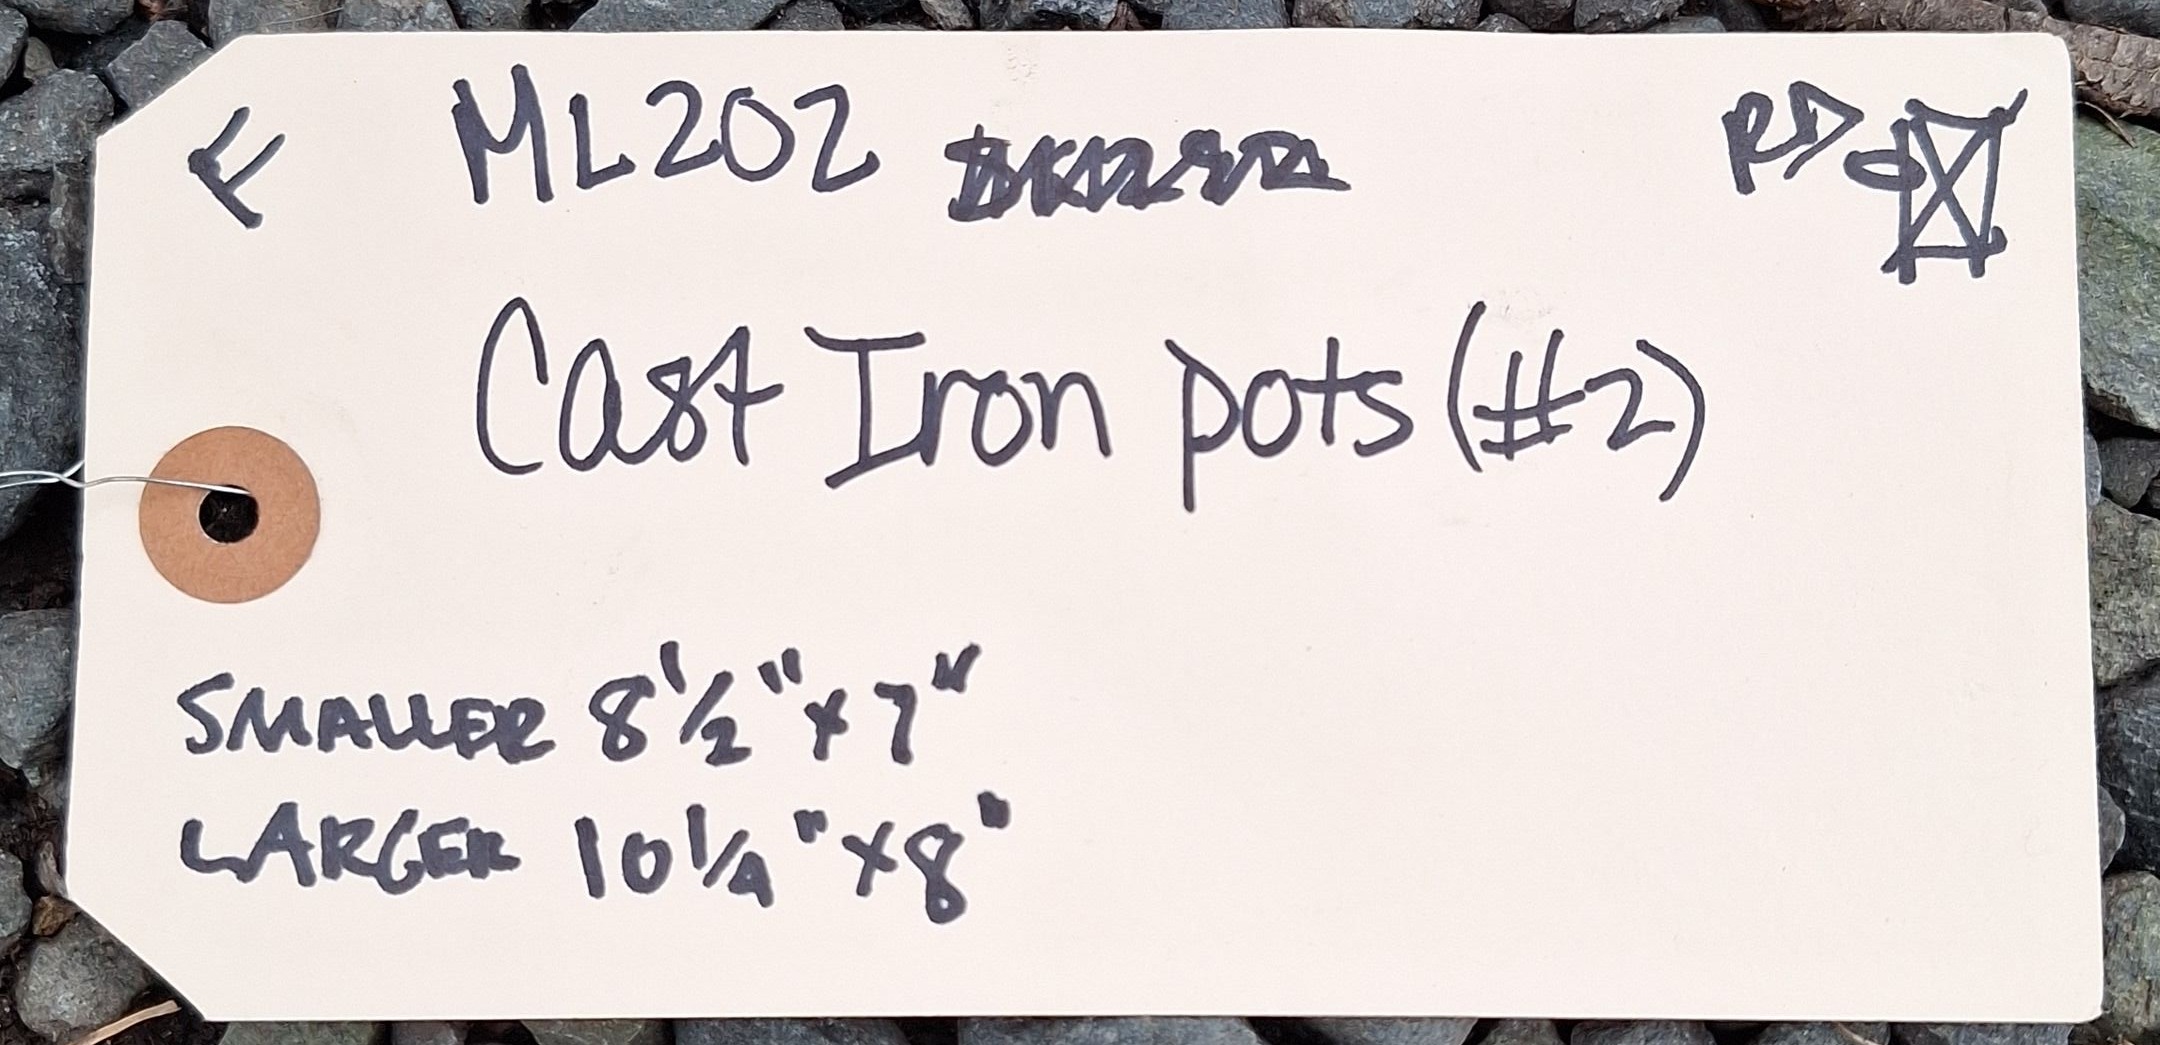 F ML202
Cast Iron pots (#2)
SMALLER 8 1/2" x 7"
LARGER 10 1/4" x 8"